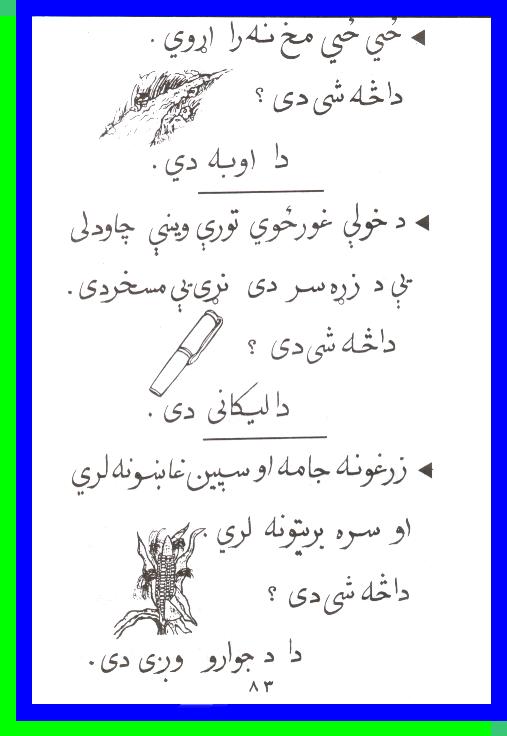 ◀ ځي ځي مخ نه را اړوي .
دا څه شی دی ؟
دا اوبه دي .
◀ د خولې غورځوي تورې وينې چاودلی
يې د زړه سر دی نړۍ يې مسخر دی .
دا څه شی دی ؟
دا ليکانی دی .
◀ زرغونه جامه او سپين غاښونه لري
او سره بريتونه لري .
دا څه شی دی ؟
دا د جوارو وږی دی .
۸۳